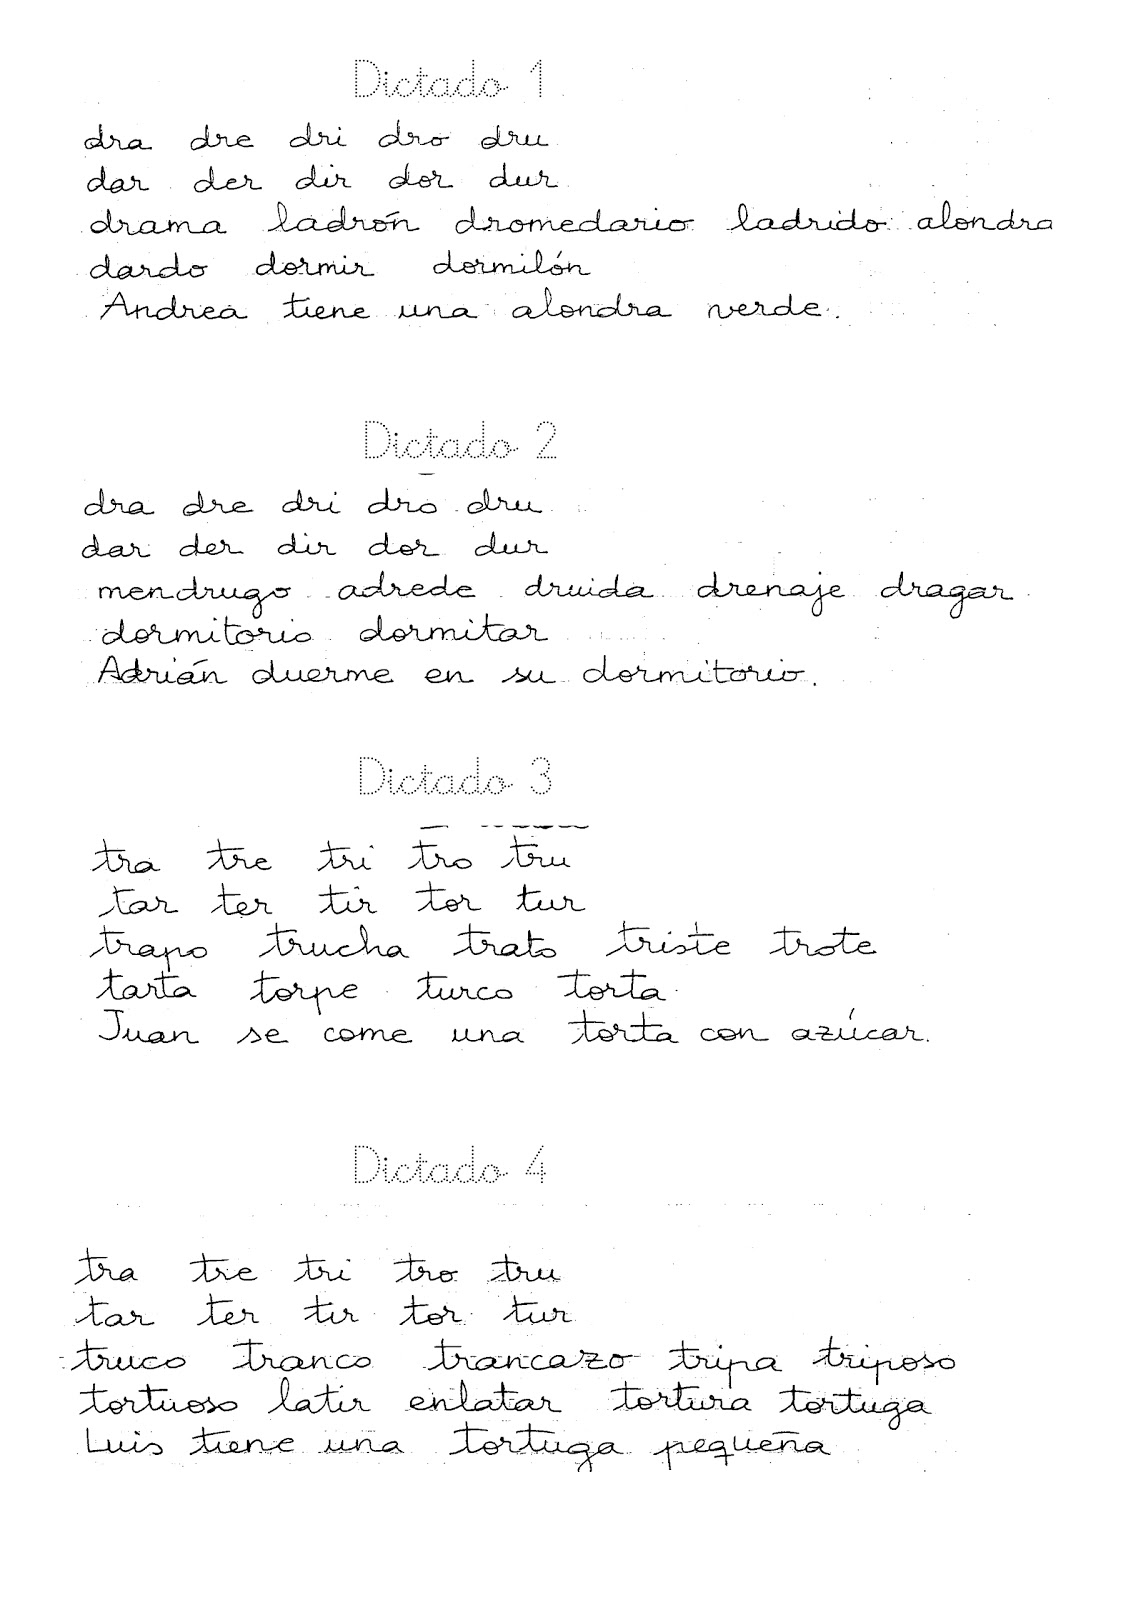 Dictado 1
dra dre dri dro dru
dar der dir dor dur
drama ladrón dromedario ladrido alondra
dardo dormir dormilón
Andrea tiene una alondra verde.
Dictado 2
dra dre dri dro dru
dar der dir dor dur
mendrugo adrede druida drenaje dragar
dormitorio dormitar
Adrián duerme en su dormitorio.
Dictado 3
tra tre tri tro tru
tar ter tir tor tur
trapo trucha trato triste trote
tarta torpe turco torta
Juan se come una torta con azúcar.
Dictado 4
tra tre tri tro tru
tar ter tir tor tur
truco tranco trancazo tripa triposo
tortuoso latir enlatar tortura tortuga
Luis tiene una tortuga pequeña